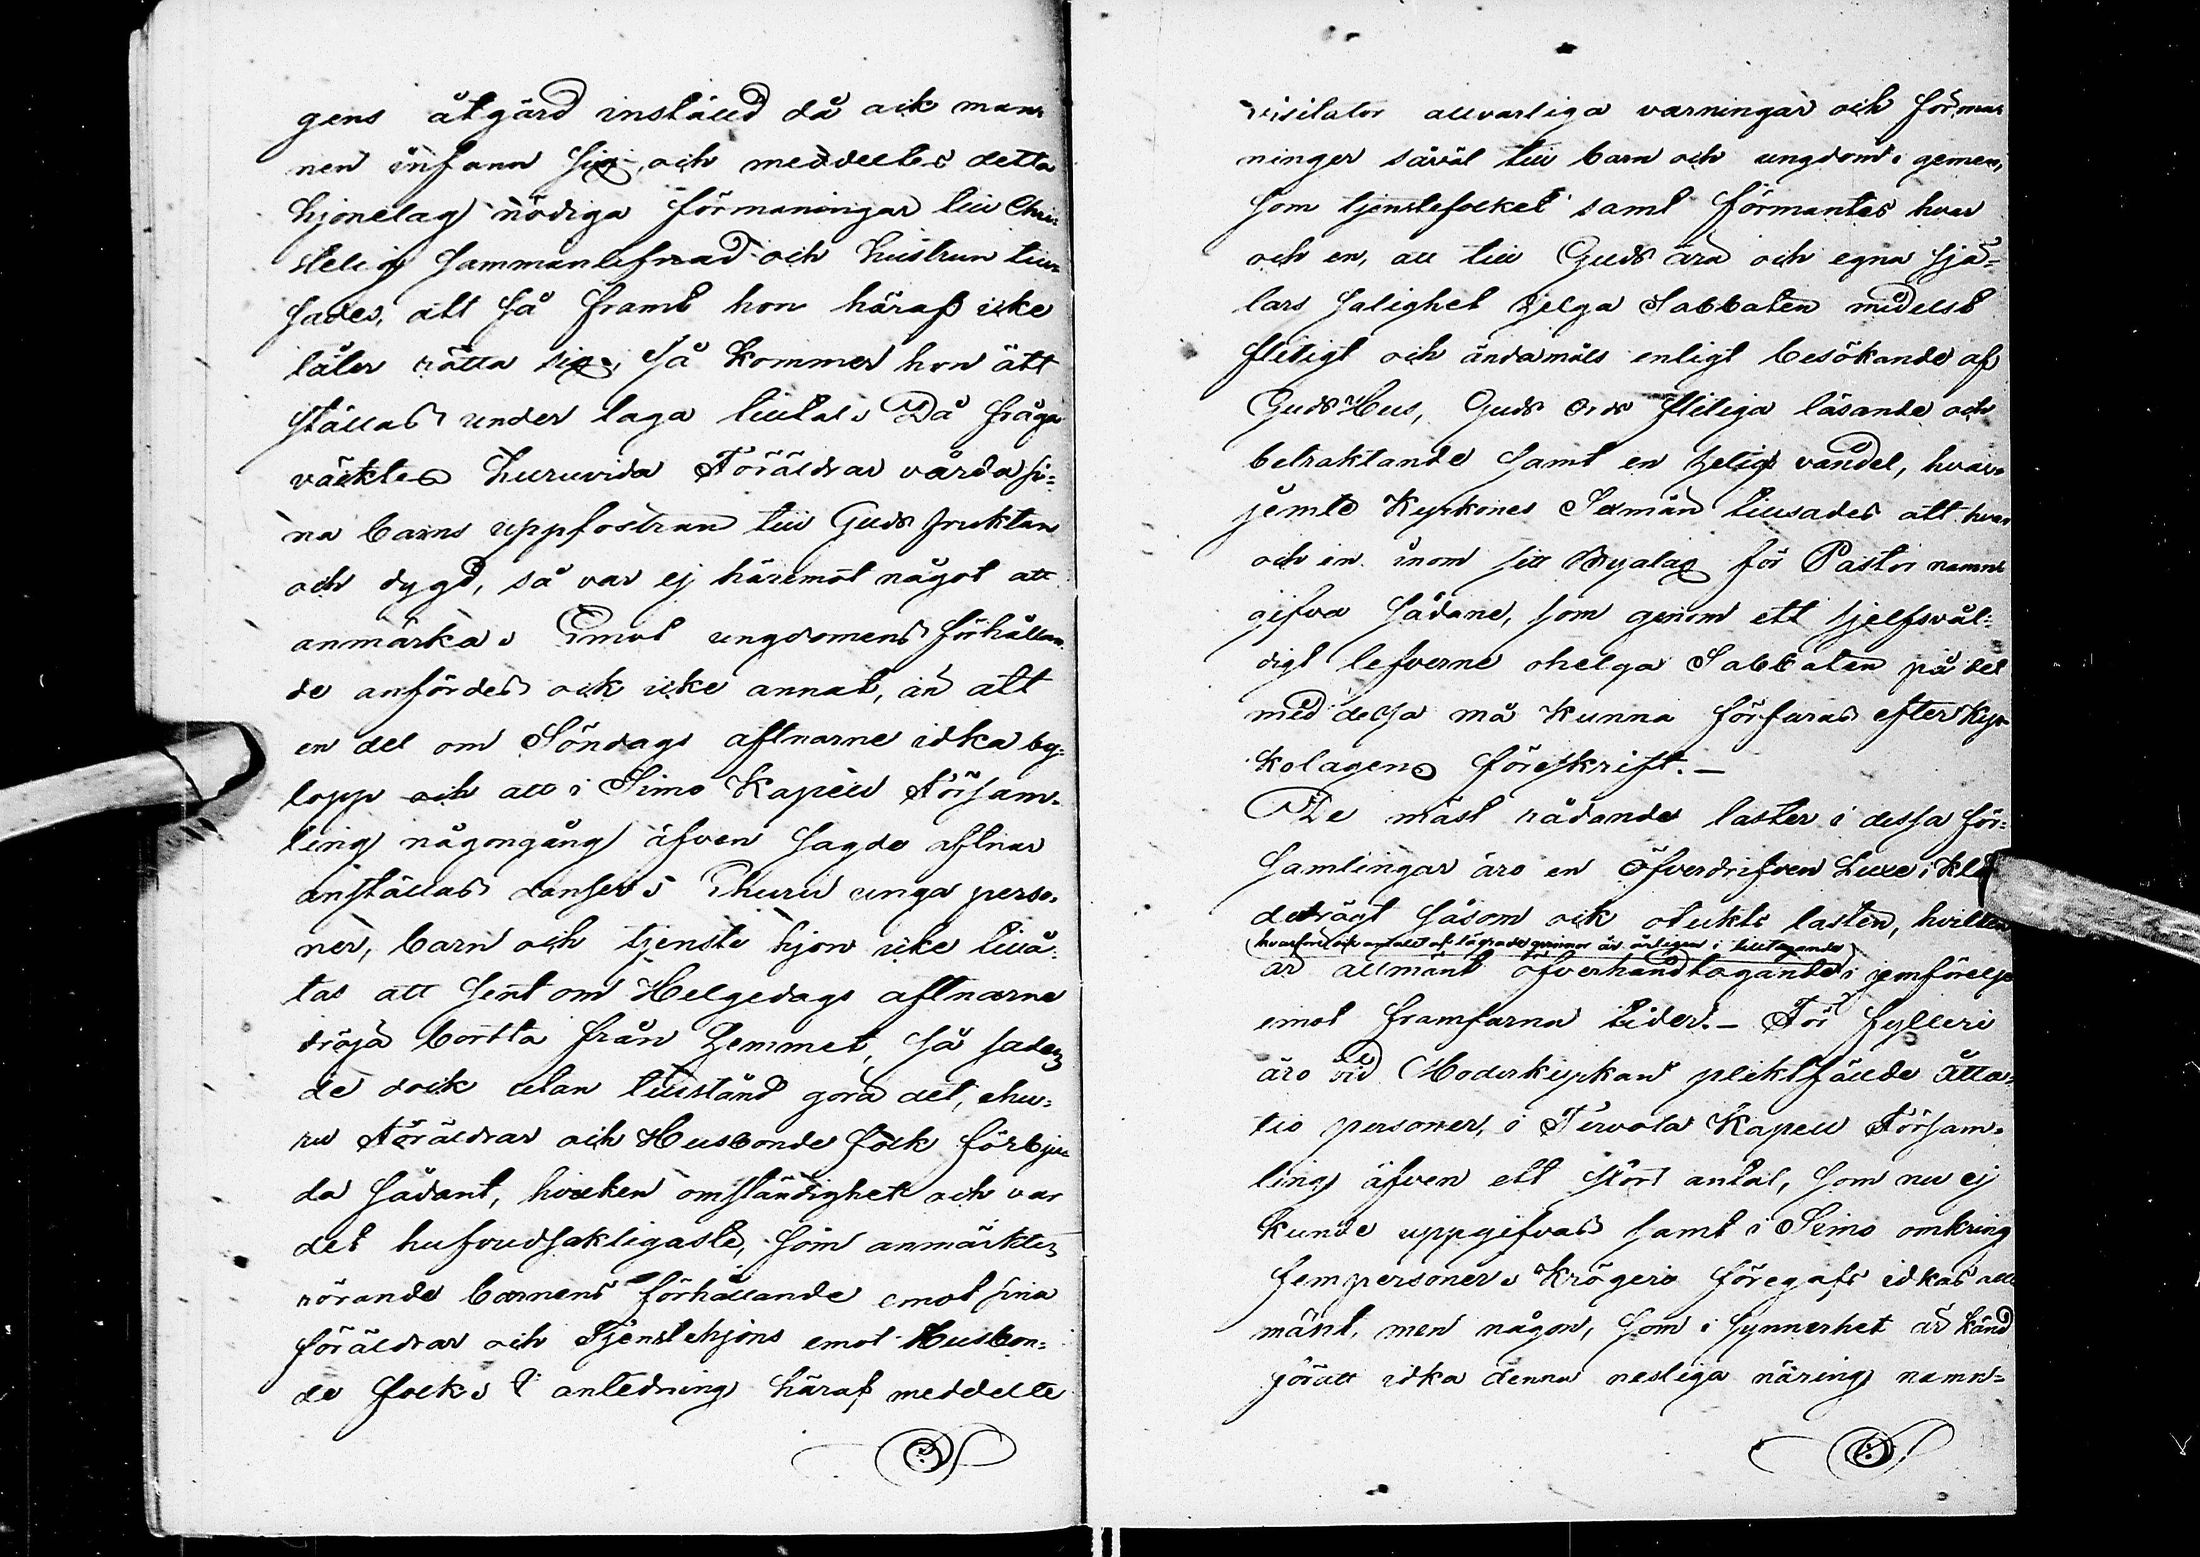 gens åtgärd inställd då ock man-
nen infann sig, och meddeltes detta
hjonelag nödiga förmaningar till Chri-
stelig sammanlefnad och hustrun till-
sades, att så framt hon häraf icke
låter rätta sig, så kommer hon att
ställas under laga tilltal. Då fråga
väcktes huruvida Föräldrar vårda si-
na barns uppfostran till Guds fruktan
och dygd, så var ej häremot något att
anmärka. Emot ungdomens förhållan-
de anfördes ock icke annat, än att
en del om Söndags aftnarne idka by-
lopp och att i Simo Kapell Försam-
ling någongång äfven sagde aftnar
anställas danser. Ehuru unga perso-
ner, barn och tjenste hjon icke tillå-
tas att sent om Helgedags aftnarne
dröja bortta från hemmet, så sades
de dock utan tillstånd göra det, ehu-
ru Föräldrar och Husbonde folk förbju-
da sådant, hvilken omständighet och var
det hufvudsakligaste, som anmärktes
rörande barnens förhållande emot sina
föräldrar och Tjenstehjons emot Husbon-
de folk. I anledning häraf meddelte
visitator allvarliga varningar och förma-
ninger såväl till barn och ungdom i gemen,
som tjenstefolket samt förmantes hvar
och en, att till Guds ära och egna sjä-
lars salighet helga Sabbaten medelst
flitigt och ändamåls enligt besökande af
Guds Hus, Guds Ords flitiga läsande och
betraktande samt en helig vandel, hvar-
jemte Kyrkones Sexmän tillsades att hvar
och en inom sitt Byalag för Pastor namn-
gifva sådane, som genom ett sjelfsvål-
digt lefverne ohelga Sabbaten på det
med dessa må kunna förfaras efter Kyr-
kolagens föreskrift.—
De mäst rådande laster i dessa för-
samlingar äro en öfverdrifven Luxe i klä-
dedrägt såsom ock otukts lasten, hvilken
hvarföre ock antalet af lägrade qvinnor är årligen i tilltagande
är allmänt öfverhandtagande i jemförelse
emot framfarna tider.— För fylleri
äro vid Moderkyrkan pliktfällde åtta-
tio personer, i Tervola Kapell Försam-
ling äfven ett stort antal, som nu ej
kunde uppgifvas samt i Simo omkring
fem personer. Krögeri föregafs idkas all-
mänt, men någon, som i synnerhet är känd
för att idka denna nesliga näring namn-